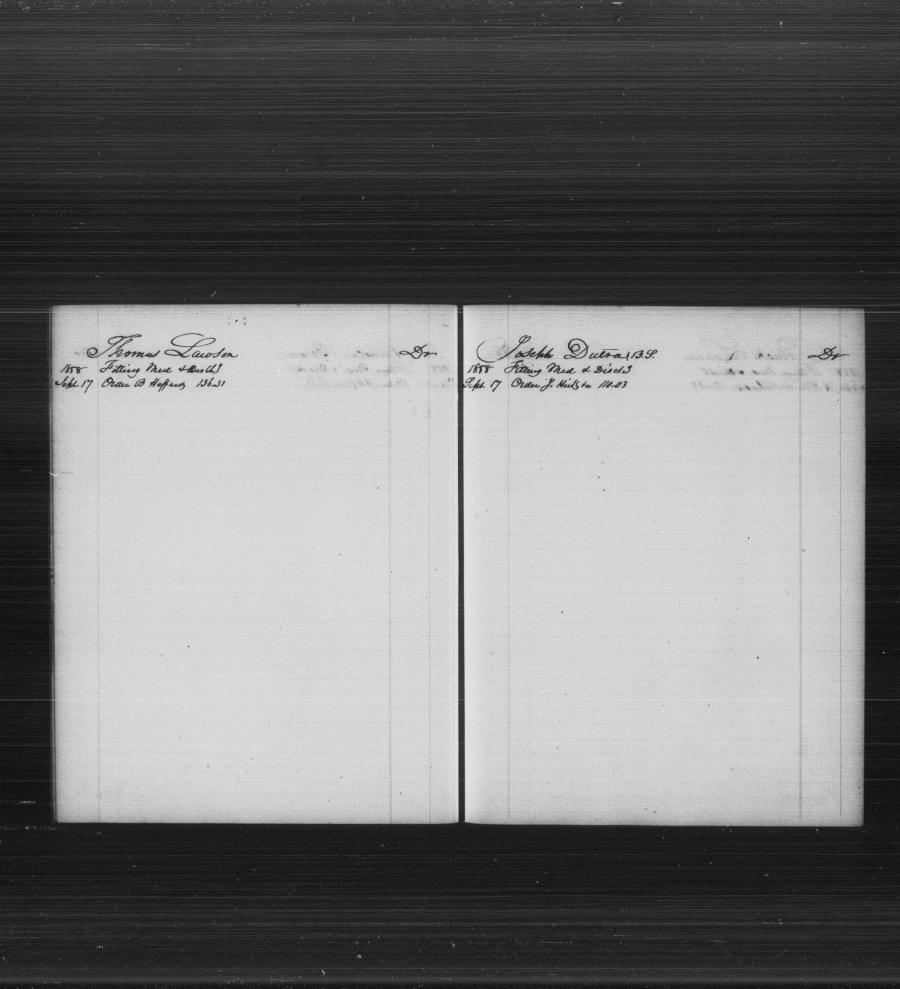 Thomas Lawson Dr
1888 Fitting Med & Disct
Sept 17 Order B Hafferdy 136.31
Joseph Dutra B.S. Dr
1888 Fitting Med & Disct
Sept 17 Order J. 111.03